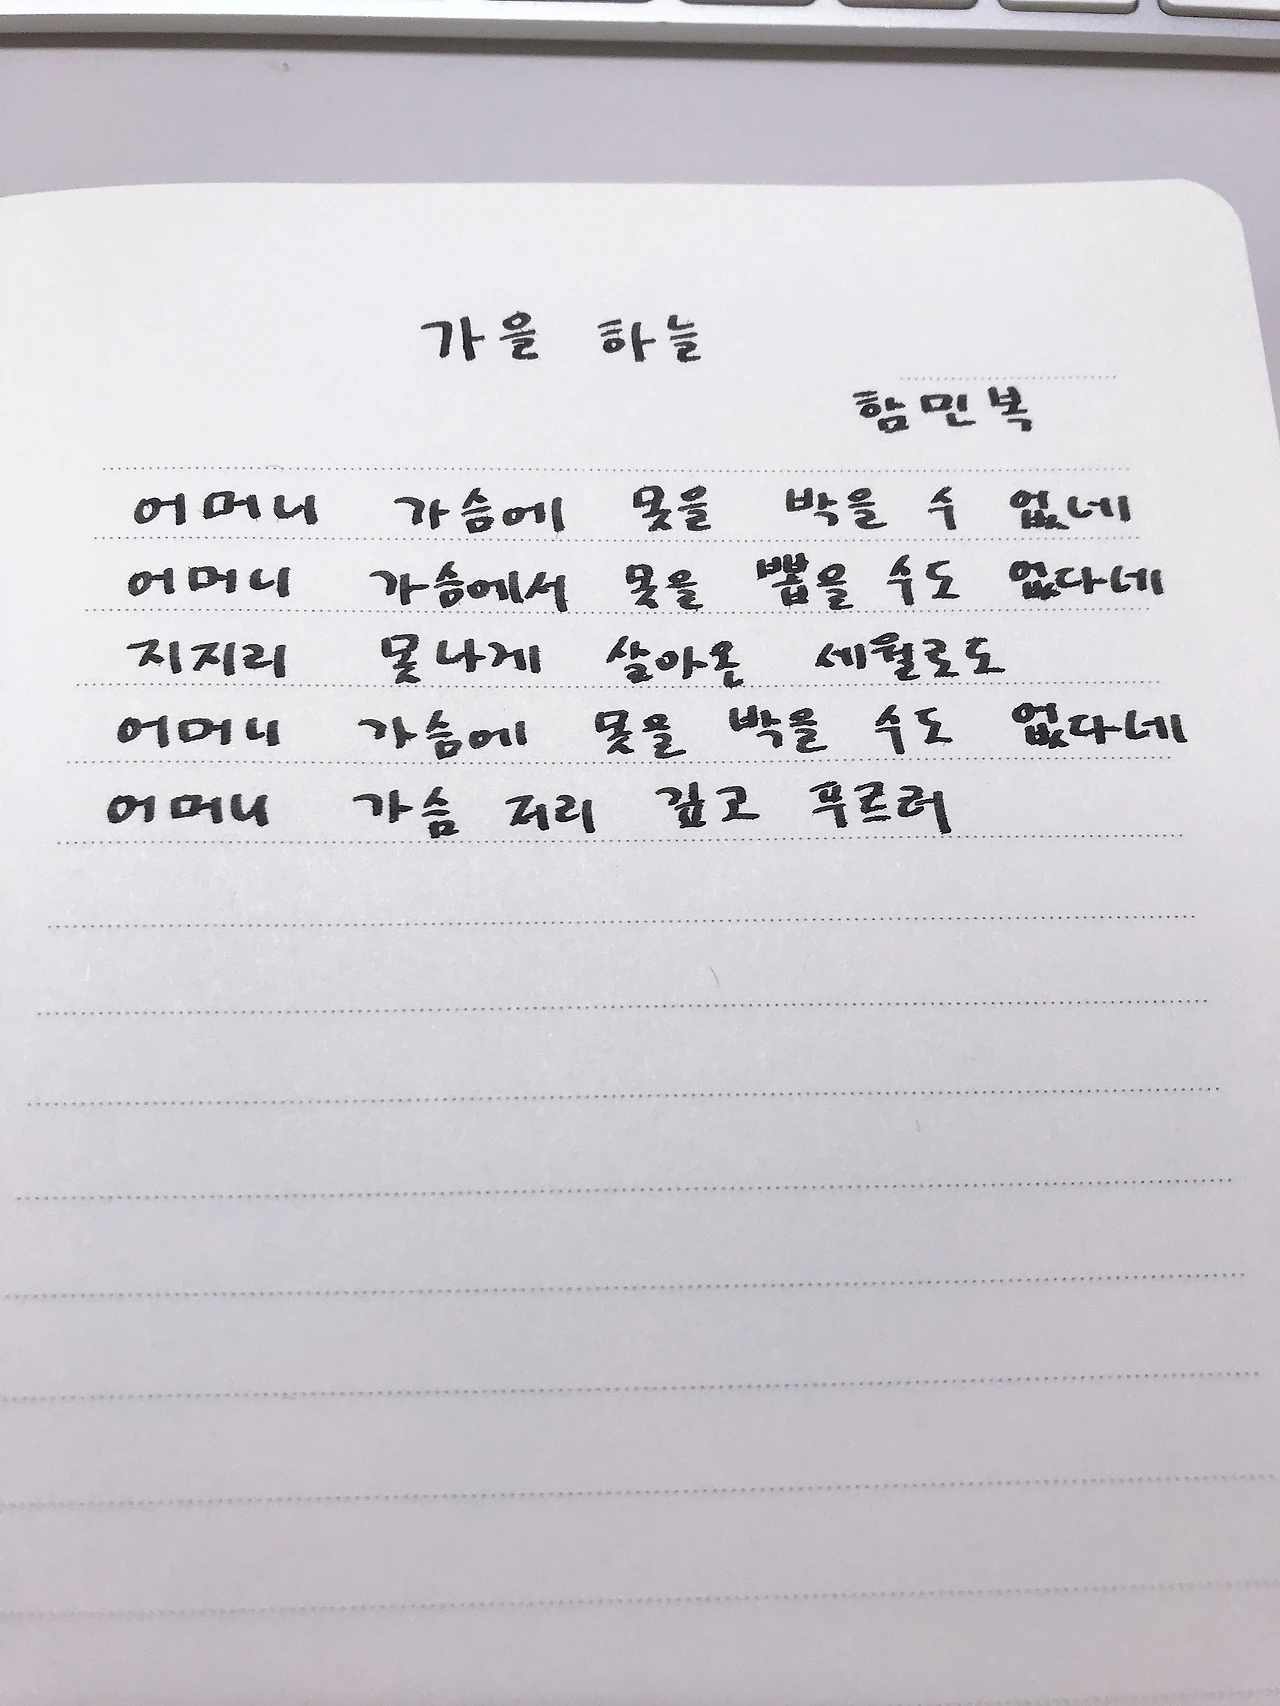 가을 하늘
함민복
어머니 가슴에 못을 박을 수 없네
어머니 가슴에서 못을 뽑을 수도 없다네
지지리 못나게 살아온 세월로도
어머니 가슴에 못을 박을 수도 없다네
어머니 가슴 저리 깊고 푸르러